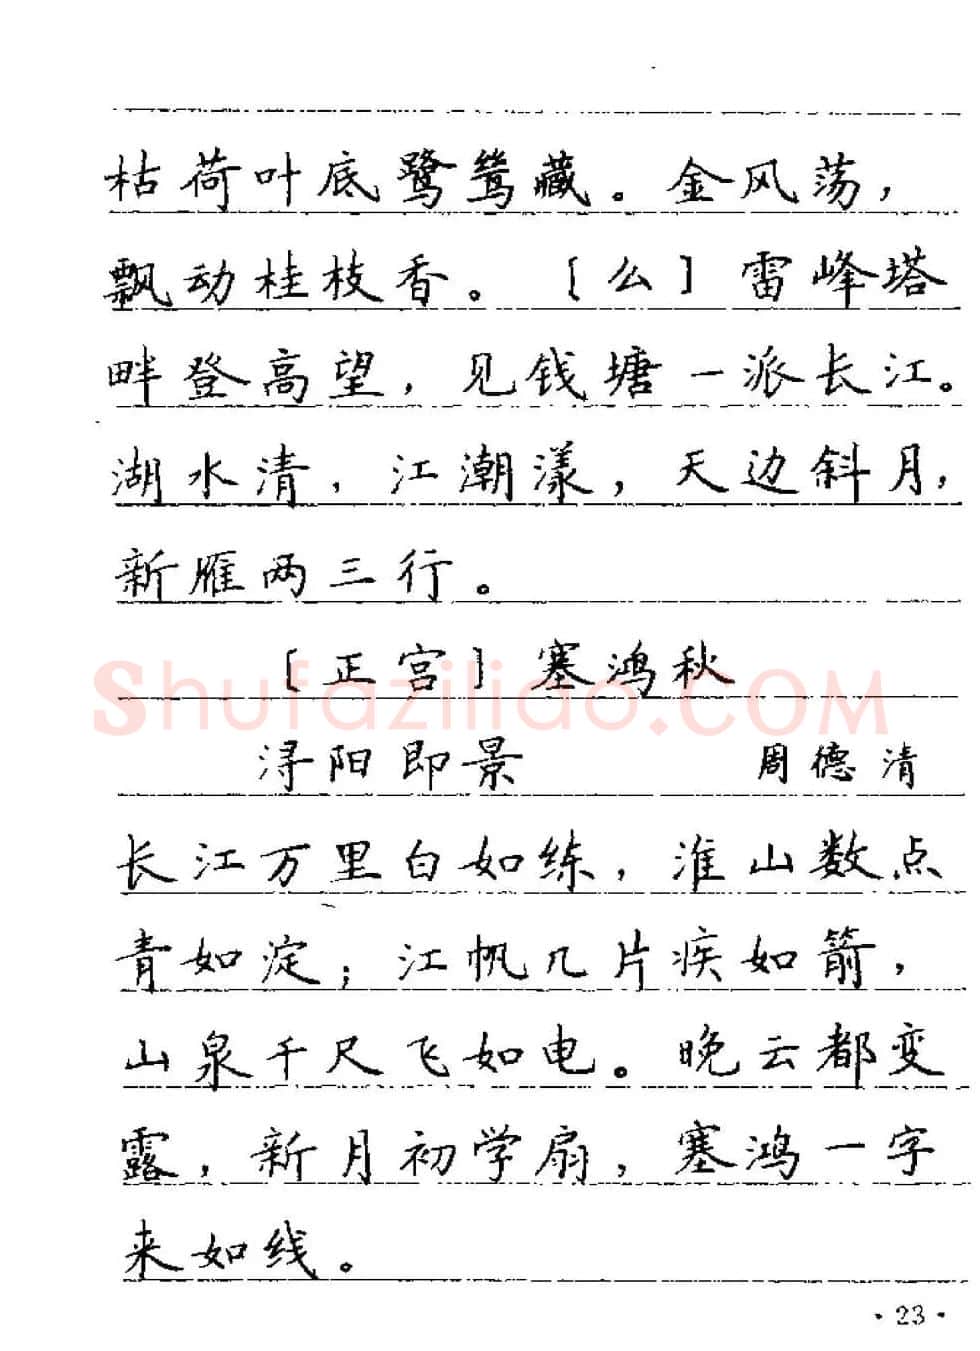 枯荷叶底鹭鸶藏。金风荡，
飘动桂枝香。〔么〕雷峰塔
畔登高望，见钱塘一派长江。
湖水清，江潮漾，天边斜月，
新雁两三行。
〔正宫〕塞鸿秋
Shufaziliao.COM
浔阳即景 周德清
长江万里白如练，淮山数点
青如淀；江帆几片疾如箭，
山泉千尺飞如电。晚云都变
露，新月初学扇，塞鸿一字
来如线。
·23·